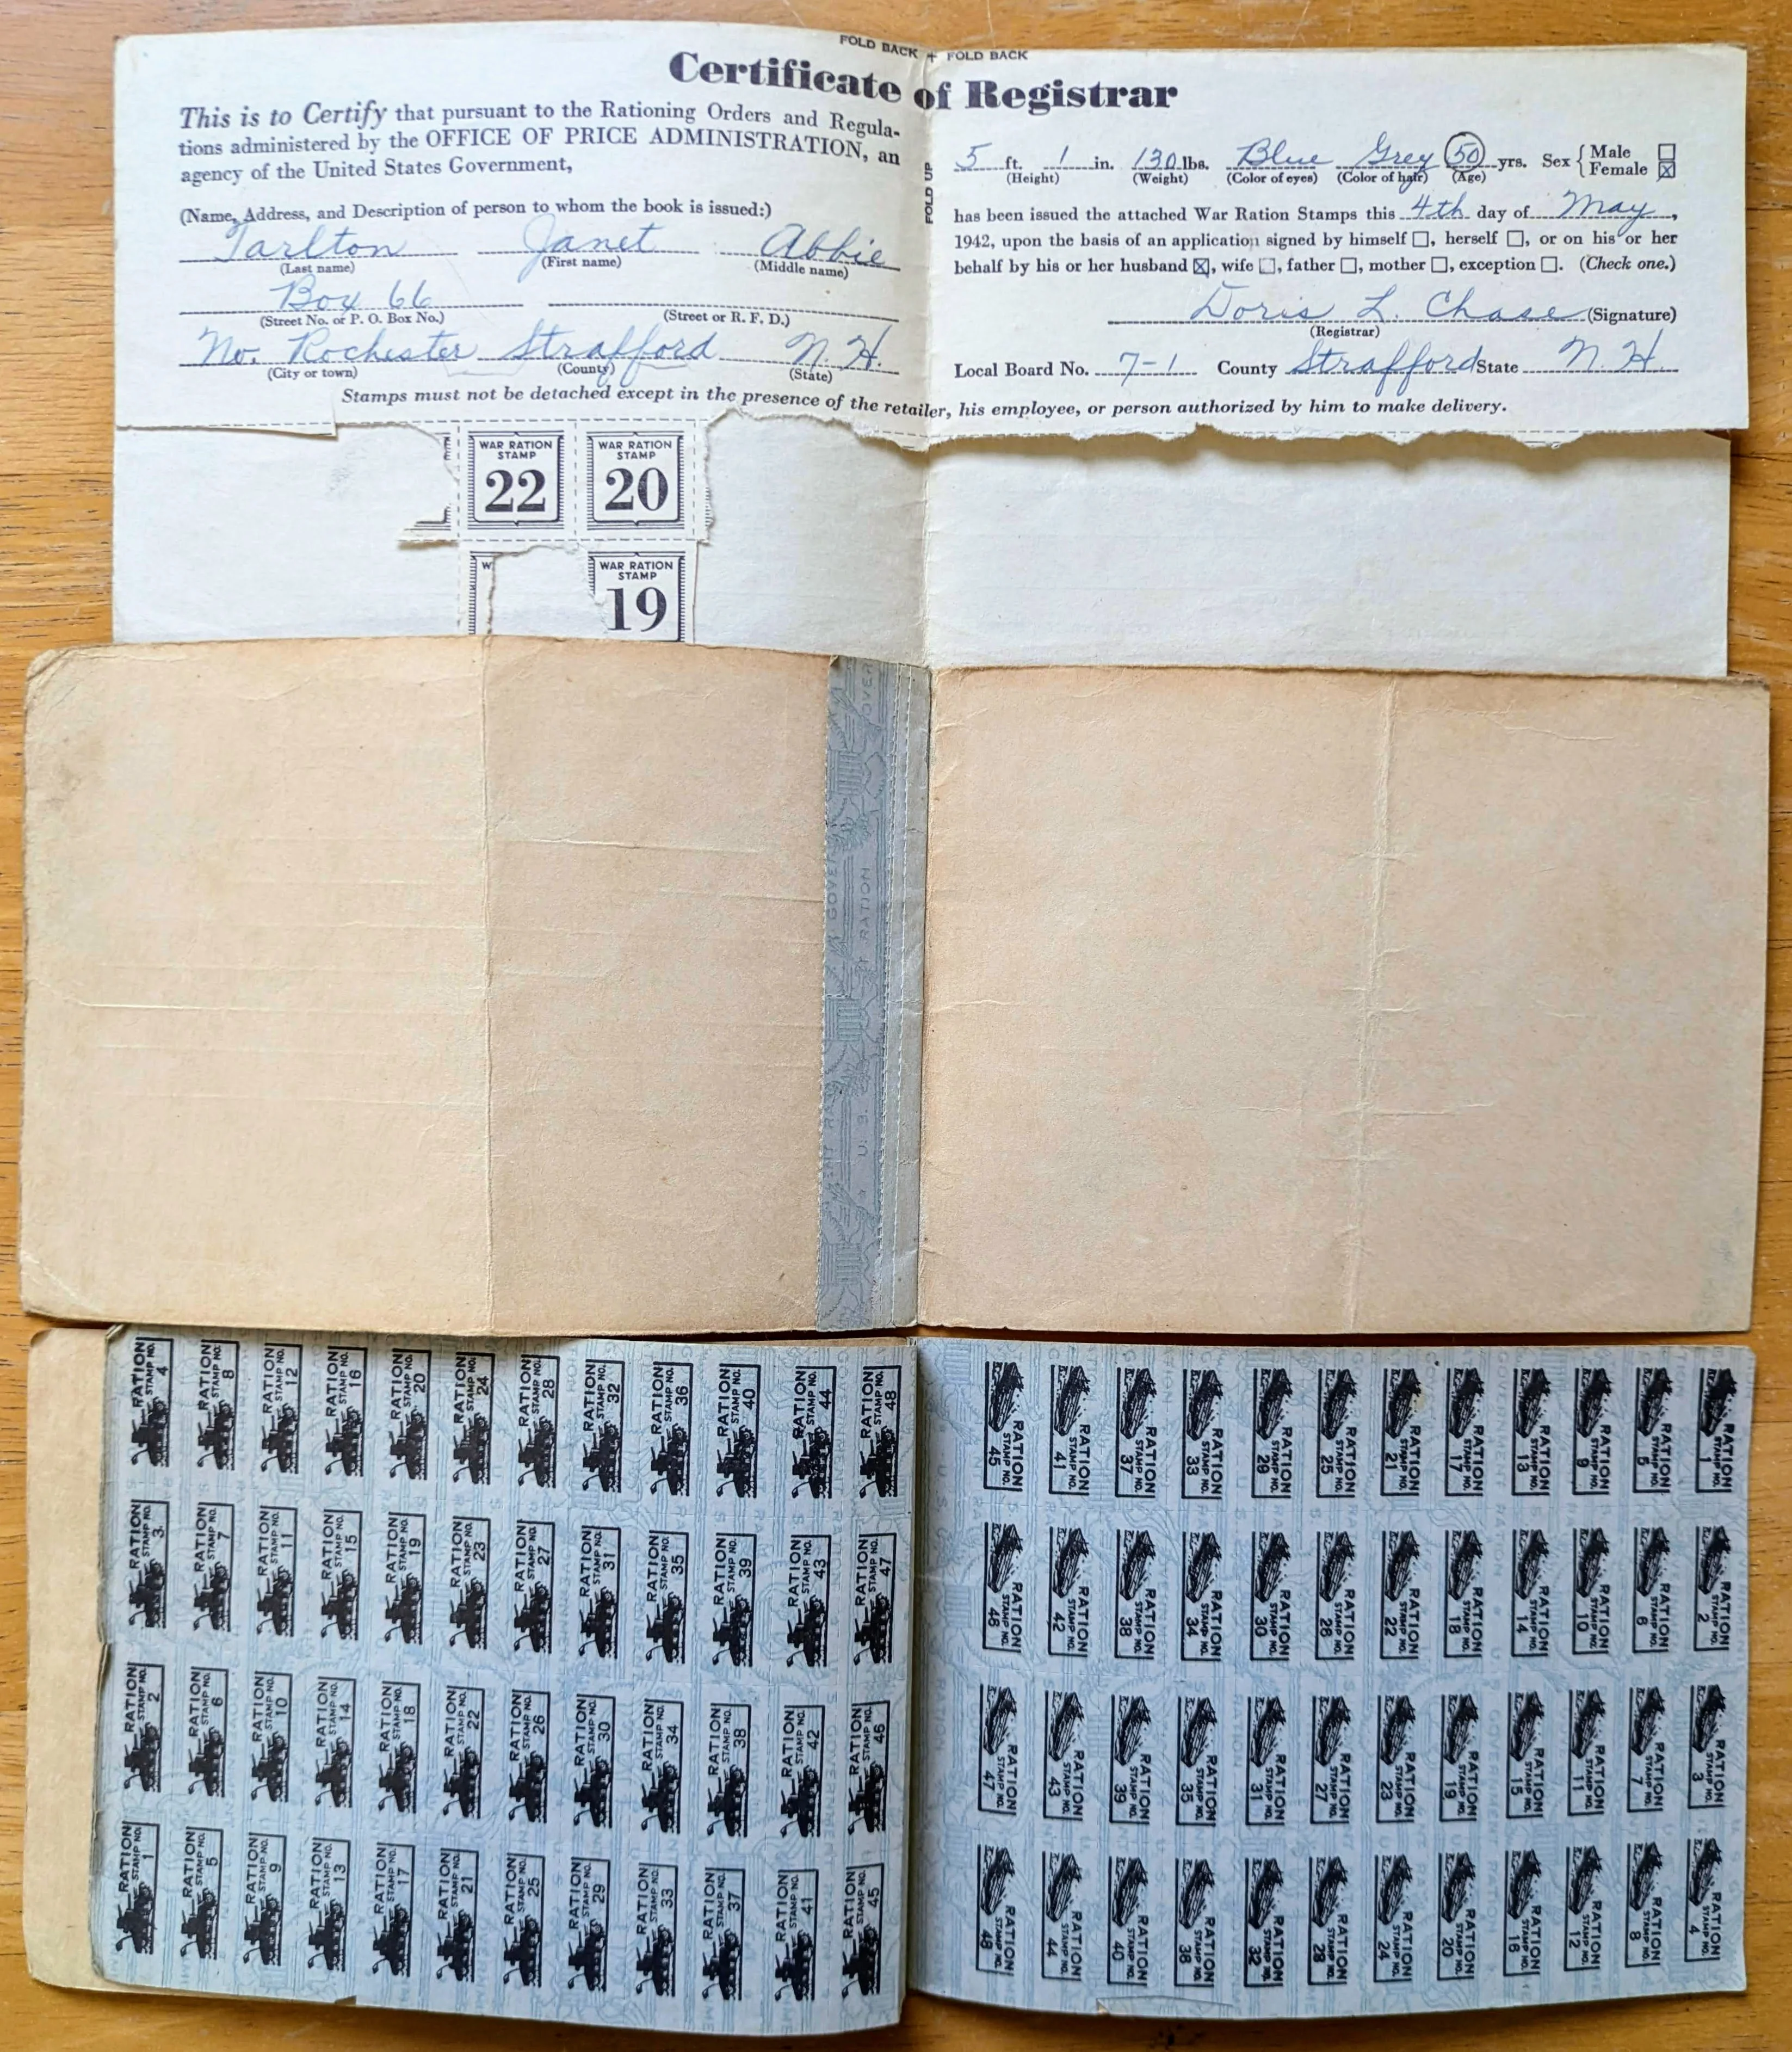 FOLD BACK + FOLD BACK
Certificate of Registrar
This is to Certify that pursuant to the Rationing Orders and Regula-
tions administered by the OFFICE OF PRICE ADMINISTRATION, an
agency of the United States Government,
(Name, Address, and Description of person to whom the book is issued:)
Tarlton Janet Abbie
(Last name) (First name) (Middle name)
Box 66
(Street No. or P. O. Box No.) (Street or R. F. D.)
No. Rochester Strafford N. H.
(City or town) (County) (State)
FOLD UP
5 ft. 1 in. 130 lbs. Blue Grey 50 yrs. Sex { Male ☐
Female ☒
(Height) (Weight) (Color of eyes) (Color of hair) (Age)
has been issued the attached War Ration Stamps this 4th day of May,
1942, upon the basis of an application signed by himself ☐, herself ☐, or on his or her
behalf by his or her husband ☒, wife ☐, father ☐, mother ☐, exception ☐. (Check one.)
Doris L. Chase (Signature)
(Registrar)
Local Board No. 7-1 County Strafford State N. H.
Stamps must not be detached except in the presence of the retailer, his employee, or person authorized by him to make delivery.
WAR RATION
STAMP
22
WAR RATION
STAMP
20
W
WAR RATION
STAMP
19
GOVER
RATION
U. S.
OVER
RATION STAMP NO. 4
RATION STAMP NO. 8
RATION STAMP NO. 12
RATION STAMP NO. 16
RATION STAMP NO. 20
RATION STAMP NO. 24
RATION STAMP NO. 28
RATION STAMP NO. 32
RATION STAMP NO. 36
RATION STAMP NO. 40
RATION STAMP NO. 44
RATION STAMP NO. 48
RATION STAMP NO. 3
RATION STAMP NO. 7
RATION STAMP NO. 11
RATION STAMP NO. 15
RATION STAMP NO. 19
RATION STAMP NO. 23
RATION STAMP NO. 27
RATION STAMP NO. 31
RATION STAMP NO. 35
RATION STAMP NO. 39
RATION STAMP NO. 43
RATION STAMP NO. 47
RATION STAMP NO. 2
RATION STAMP NO. 6
RATION STAMP NO. 10
RATION STAMP NO. 14
RATION STAMP NO. 18
RATION STAMP NO. 22
RATION STAMP NO. 26
RATION STAMP NO. 30
RATION STAMP NO. 34
RATION STAMP NO. 38
RATION STAMP NO. 42
RATION STAMP NO. 46
RATION STAMP NO. 1
RATION STAMP NO. 5
RATION STAMP NO. 9
RATION STAMP NO. 13
RATION STAMP NO. 17
RATION STAMP NO. 21
RATION STAMP NO. 25
RATION STAMP NO. 29
RATION STAMP NO. 33
RATION STAMP NO. 37
RATION STAMP NO. 41
RATION STAMP NO. 45
RATION STAMP NO. 45
RATION STAMP NO. 41
RATION STAMP NO. 37
RATION STAMP NO. 33
RATION STAMP NO. 29
RATION STAMP NO. 25
RATION STAMP NO. 21
RATION STAMP NO. 17
RATION STAMP NO. 13
RATION STAMP NO. 9
RATION STAMP NO. 5
RATION STAMP NO. 1
RATION STAMP NO. 46
RATION STAMP NO. 42
RATION STAMP NO. 38
RATION STAMP NO. 34
RATION STAMP NO. 30
RATION STAMP NO. 26
RATION STAMP NO. 22
RATION STAMP NO. 18
RATION STAMP NO. 14
RATION STAMP NO. 10
RATION STAMP NO. 6
RATION STAMP NO. 2
RATION STAMP NO. 47
RATION STAMP NO. 43
RATION STAMP NO. 39
RATION STAMP NO. 35
RATION STAMP NO. 31
RATION STAMP NO. 27
RATION STAMP NO. 23
RATION STAMP NO. 19
RATION STAMP NO. 15
RATION STAMP NO. 11
RATION STAMP NO. 7
RATION STAMP NO. 3
RATION STAMP NO. 48
RATION STAMP NO. 44
RATION STAMP NO. 40
RATION STAMP NO. 36
RATION STAMP NO. 32
RATION STAMP NO. 28
RATION STAMP NO. 24
RATION STAMP NO. 20
RATION STAMP NO. 16
RATION STAMP NO. 12
RATION STAMP NO. 8
RATION STAMP NO. 4